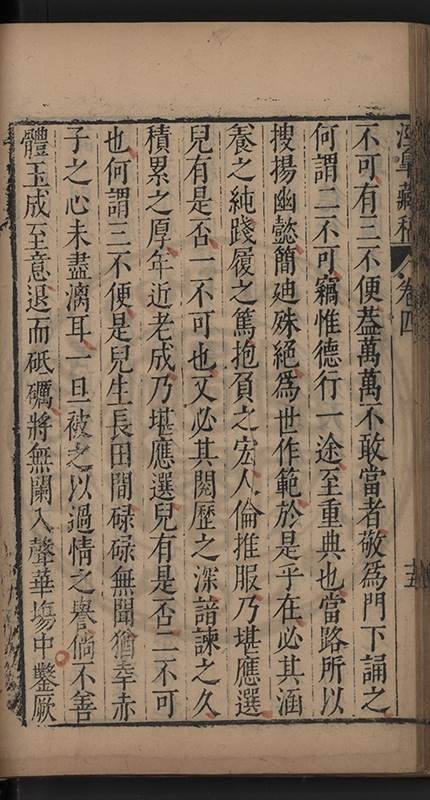 不可有三不便蓋萬萬不敢當者敬爲門下誦之
何謂二不可竊惟德行一途至重典也當路所以
搜揚幽懿簡廸殊絕爲世作範於是乎在必其涵
養之純踐履之篤抱負之宏人倫推服乃堪應選
兒有是否一不可也又必其閱歷之深諳諫之久
積累之厚年近老成乃堪應選兒有是否二不可
也何謂三不便是兒生長田間碌碌無聞猶幸赤
子之心未盡漓耳一旦被之以過情之譽倘不善
體玉成至意退而砥礪將無闌入聲華塲中鑿厥
藏稿
卷四